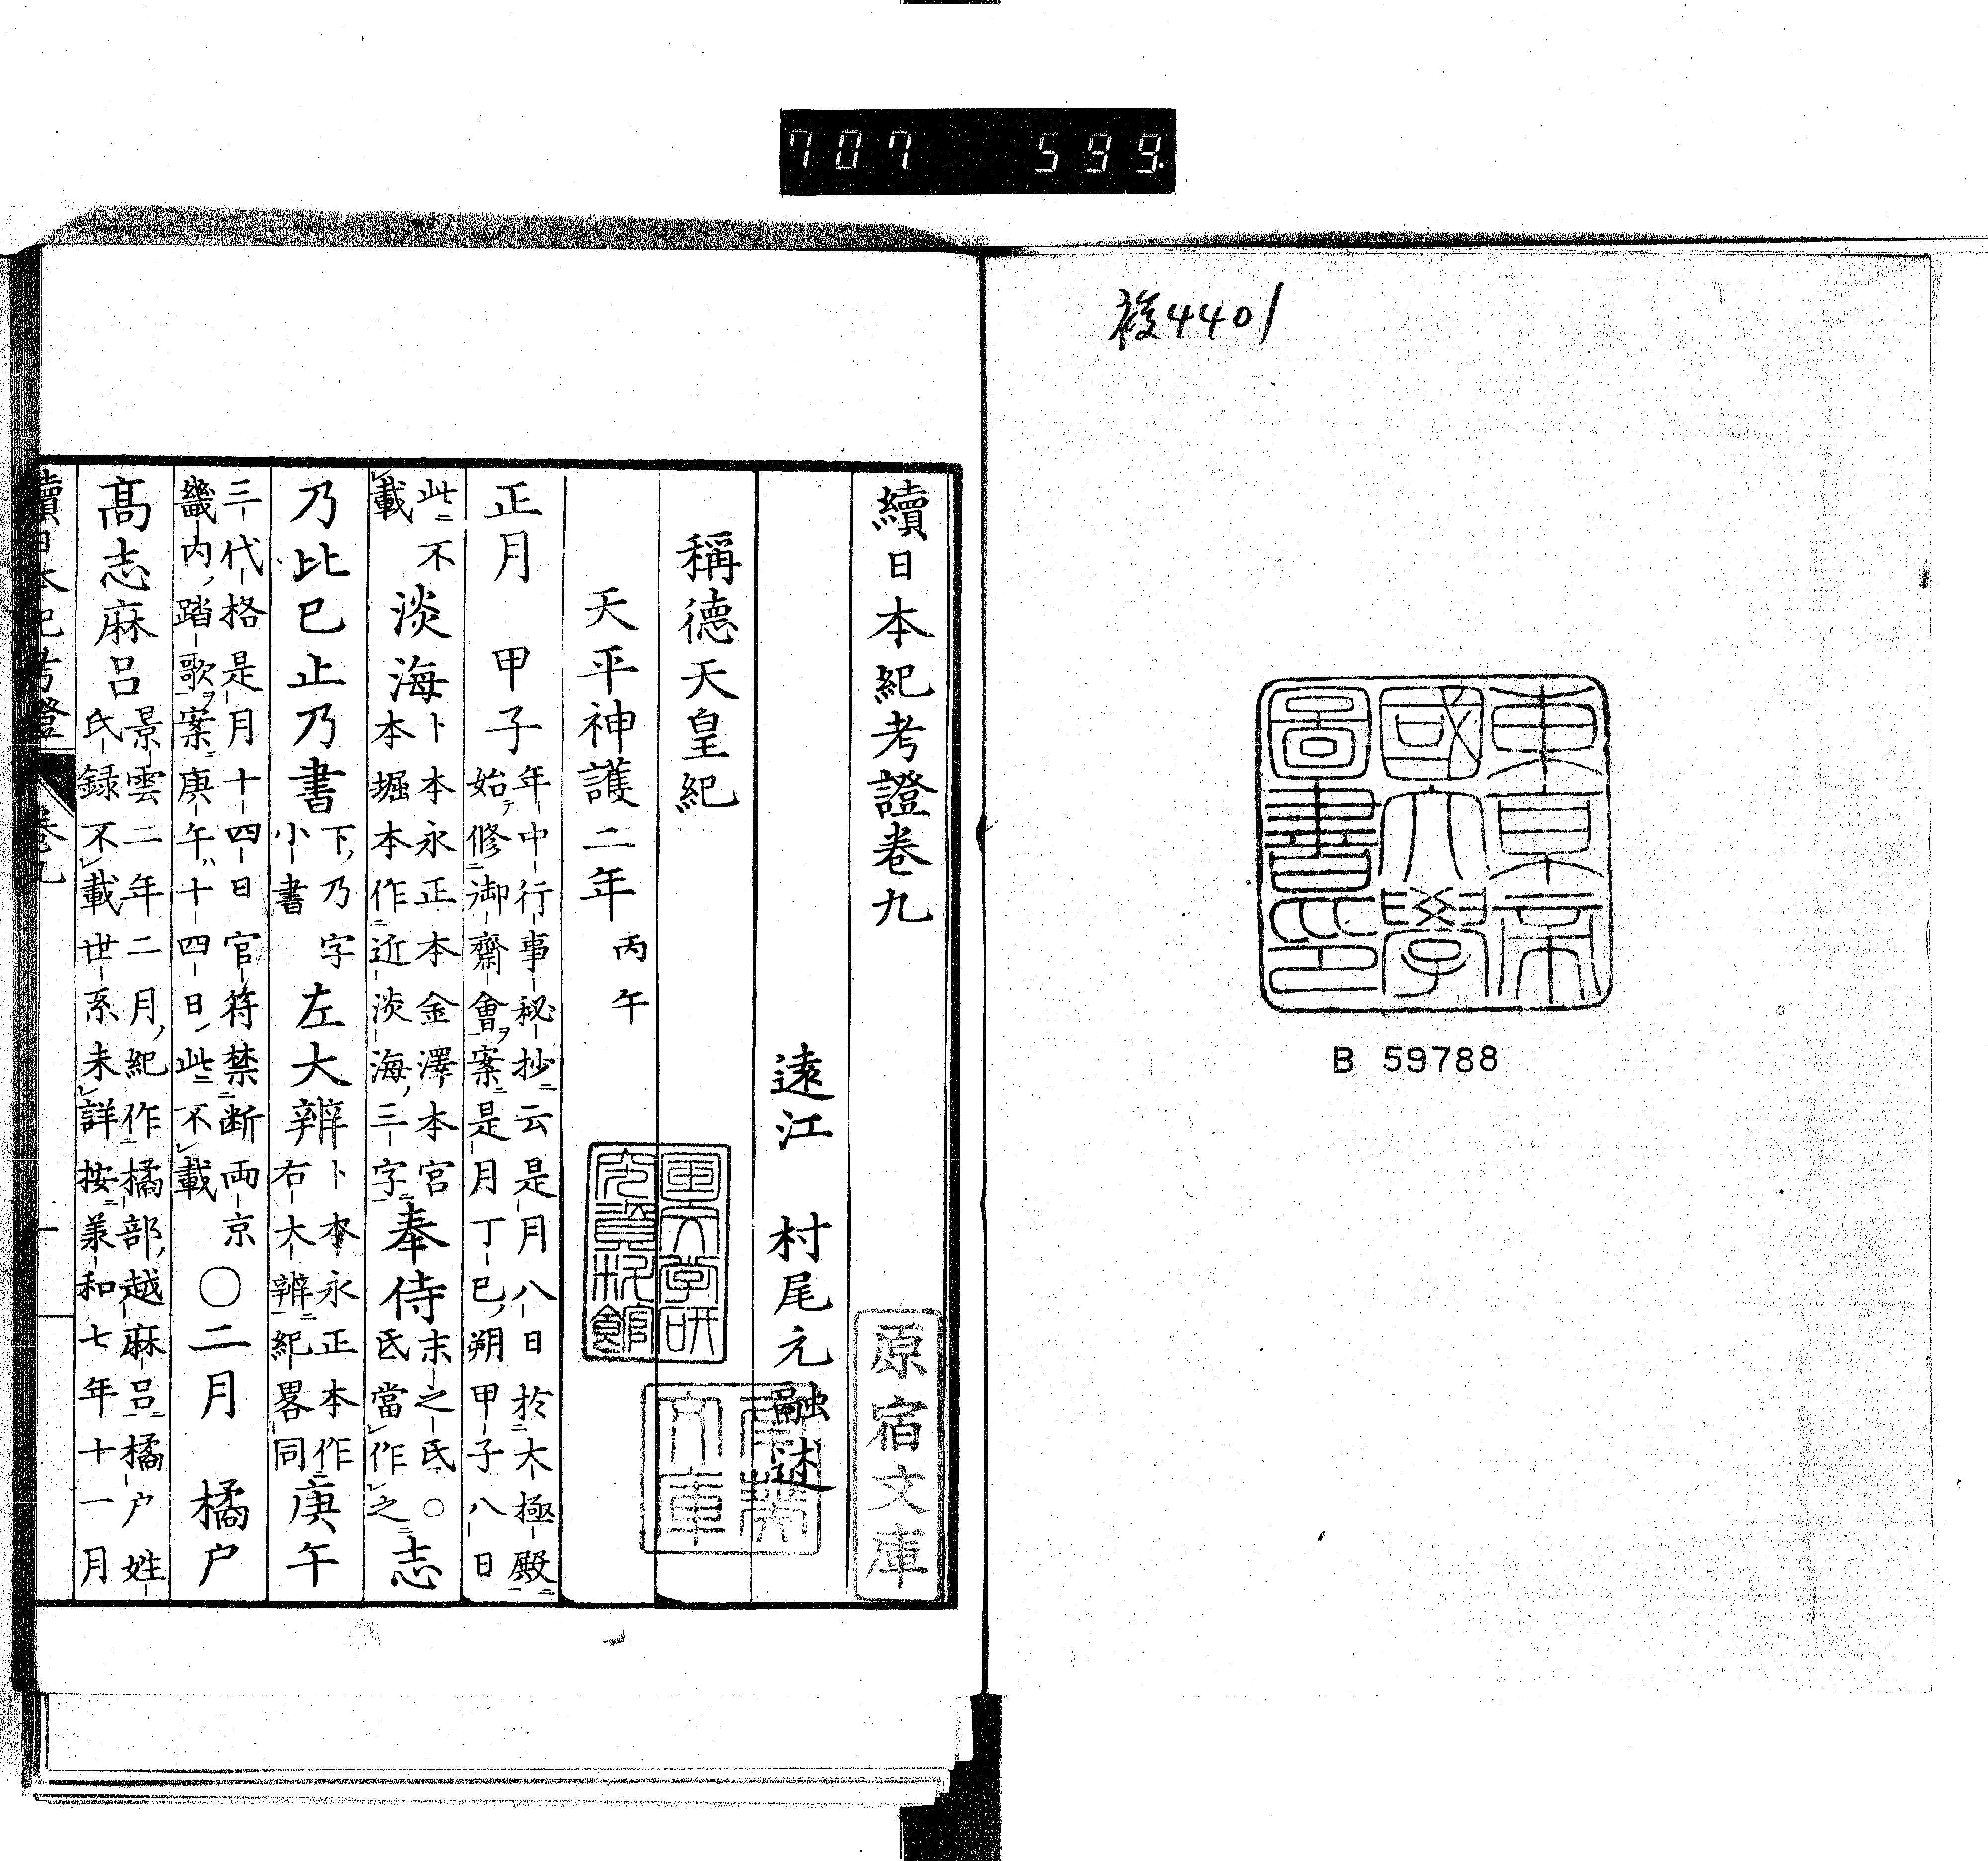 707 599
後4401
東京帝
國大學
圖書印
B 59788
續日本紀考證卷九
遠江 村尾元融述
稱德天皇紀
天平神護二年丙午
正月 甲子年中行事秘抄云是月八日於大極殿
始テ修御齋會ヲ案是月丁巳朔甲子八日
此不
載淡海卜本永正本金澤本宮
本堀本作近淡海三字奉侍末之氏○
氏當作之志
乃比已止乃書下乃字
小書左大辨卜本永正本作
右大辨紀畧同庚午
三代格是月十四日官符禁断両京
畿内踏歌ヲ案庚午十四日此不載○二月 橘户
髙志麻呂景雲二年二月紀作橘部越麻呂橘户姓
氏録不載世系未詳按承和七年十一月
原宿文庫
國文学研
究資料館
文庫
續日本紀考證 卷九 一